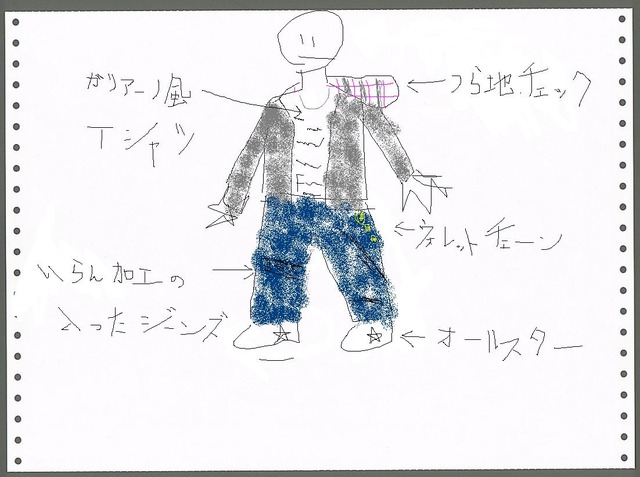 ガリアーノ風
Tシャツ
うら地チェック
ウォレットチェーン
いらん加工の
入ったジーンズ
オールスター